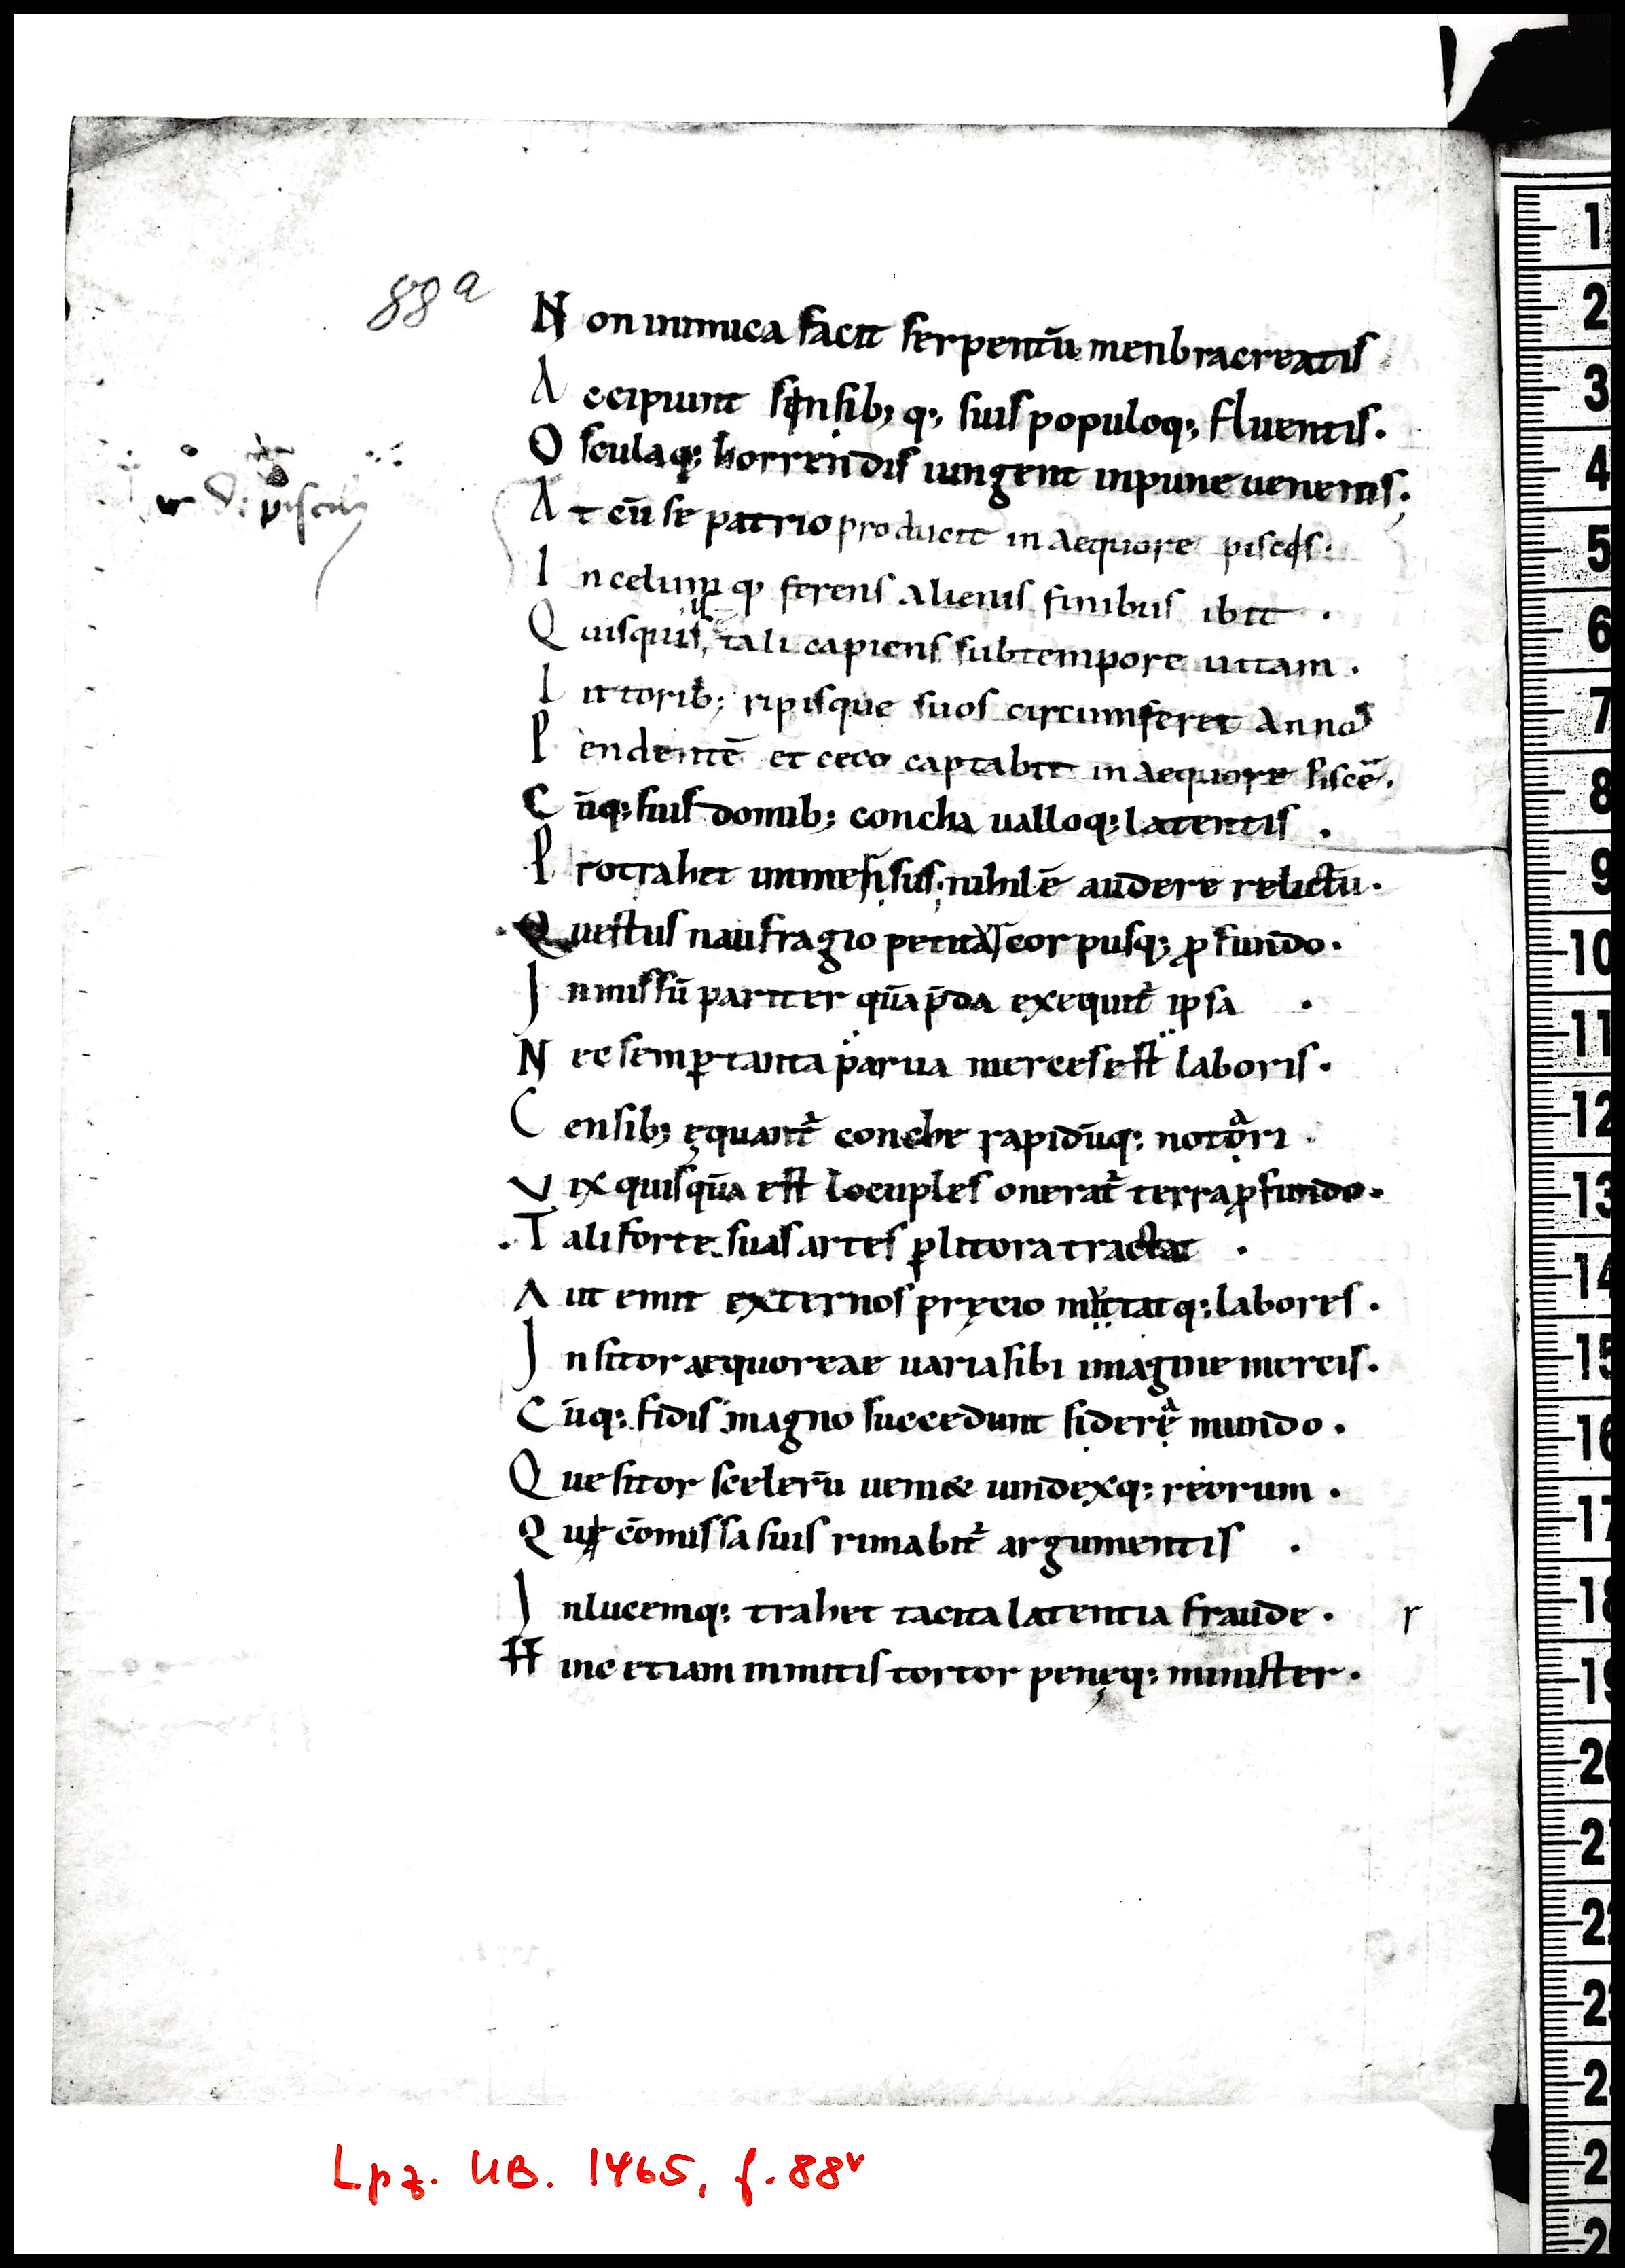 88 a
N on inimica facit serpentū menbra creatis
A ccipiunt sinsib; q; suis populoq; fluentis.
O sculaq; horrendis iungent inpune uenenis;
de piscib;
A t cū se patrio producit in aequore pisces.
I n celumq; ferens alienis finibus ibit .
Q uisquis tali capiens sub tempore uitam .
L ittorib; ripisque suos circumferet annos
P endentē et ceco captabit in aequore piscē.
C ūq; suis domib; concha ualloq; latentis .
P rotrahit immensus. nihil ē audere relictū.
Q uestus naufragio petitur corpusq; ꝓfundo.
I nmissū pariter quā p̄da exequit᷑ ipsa .
N ec semꝑ tanta parua merces est laboris.
C ensib; ęquant᷑ conche rapidūq; notari .
V ix quisquā est locuples onerat᷑ terra ꝓfundo.
T ali sorte suas artes ꝑ litora tractat .
A ut emit externos pręcio mutatq; labores .
I nsitor aequoreae uaria sibi imagine mercis.
C ūq; fidis magno succedunt siderą mundo .
Q uesitor scelerū ueniet uindexq; reorum .
Q ui cōmissa suis rimabit᷑ argumentis .
I n lucemq; trahet tacita latentia fraude . r
H inc etiam inmitis tortor penęq; minister .
1
2
3
4
5
6
7
8
9
10
11
12
13
14
15
16
17
18
19
20
2
2
2
2
2
2
Lpz. UB. 1465, f. 88v